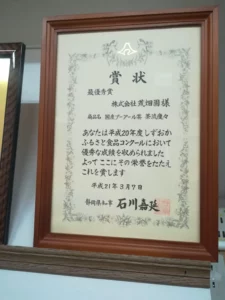 賞状
最優秀賞
株式会社荒畑園様
商品名
あなたは平成20年度しずおか
ふるさと食品コンクールにおいて
優秀な成績を収められました
よって ここにその栄誉をたたえ
これを賞します
平成21年3月7日
静岡県知事 石川嘉延